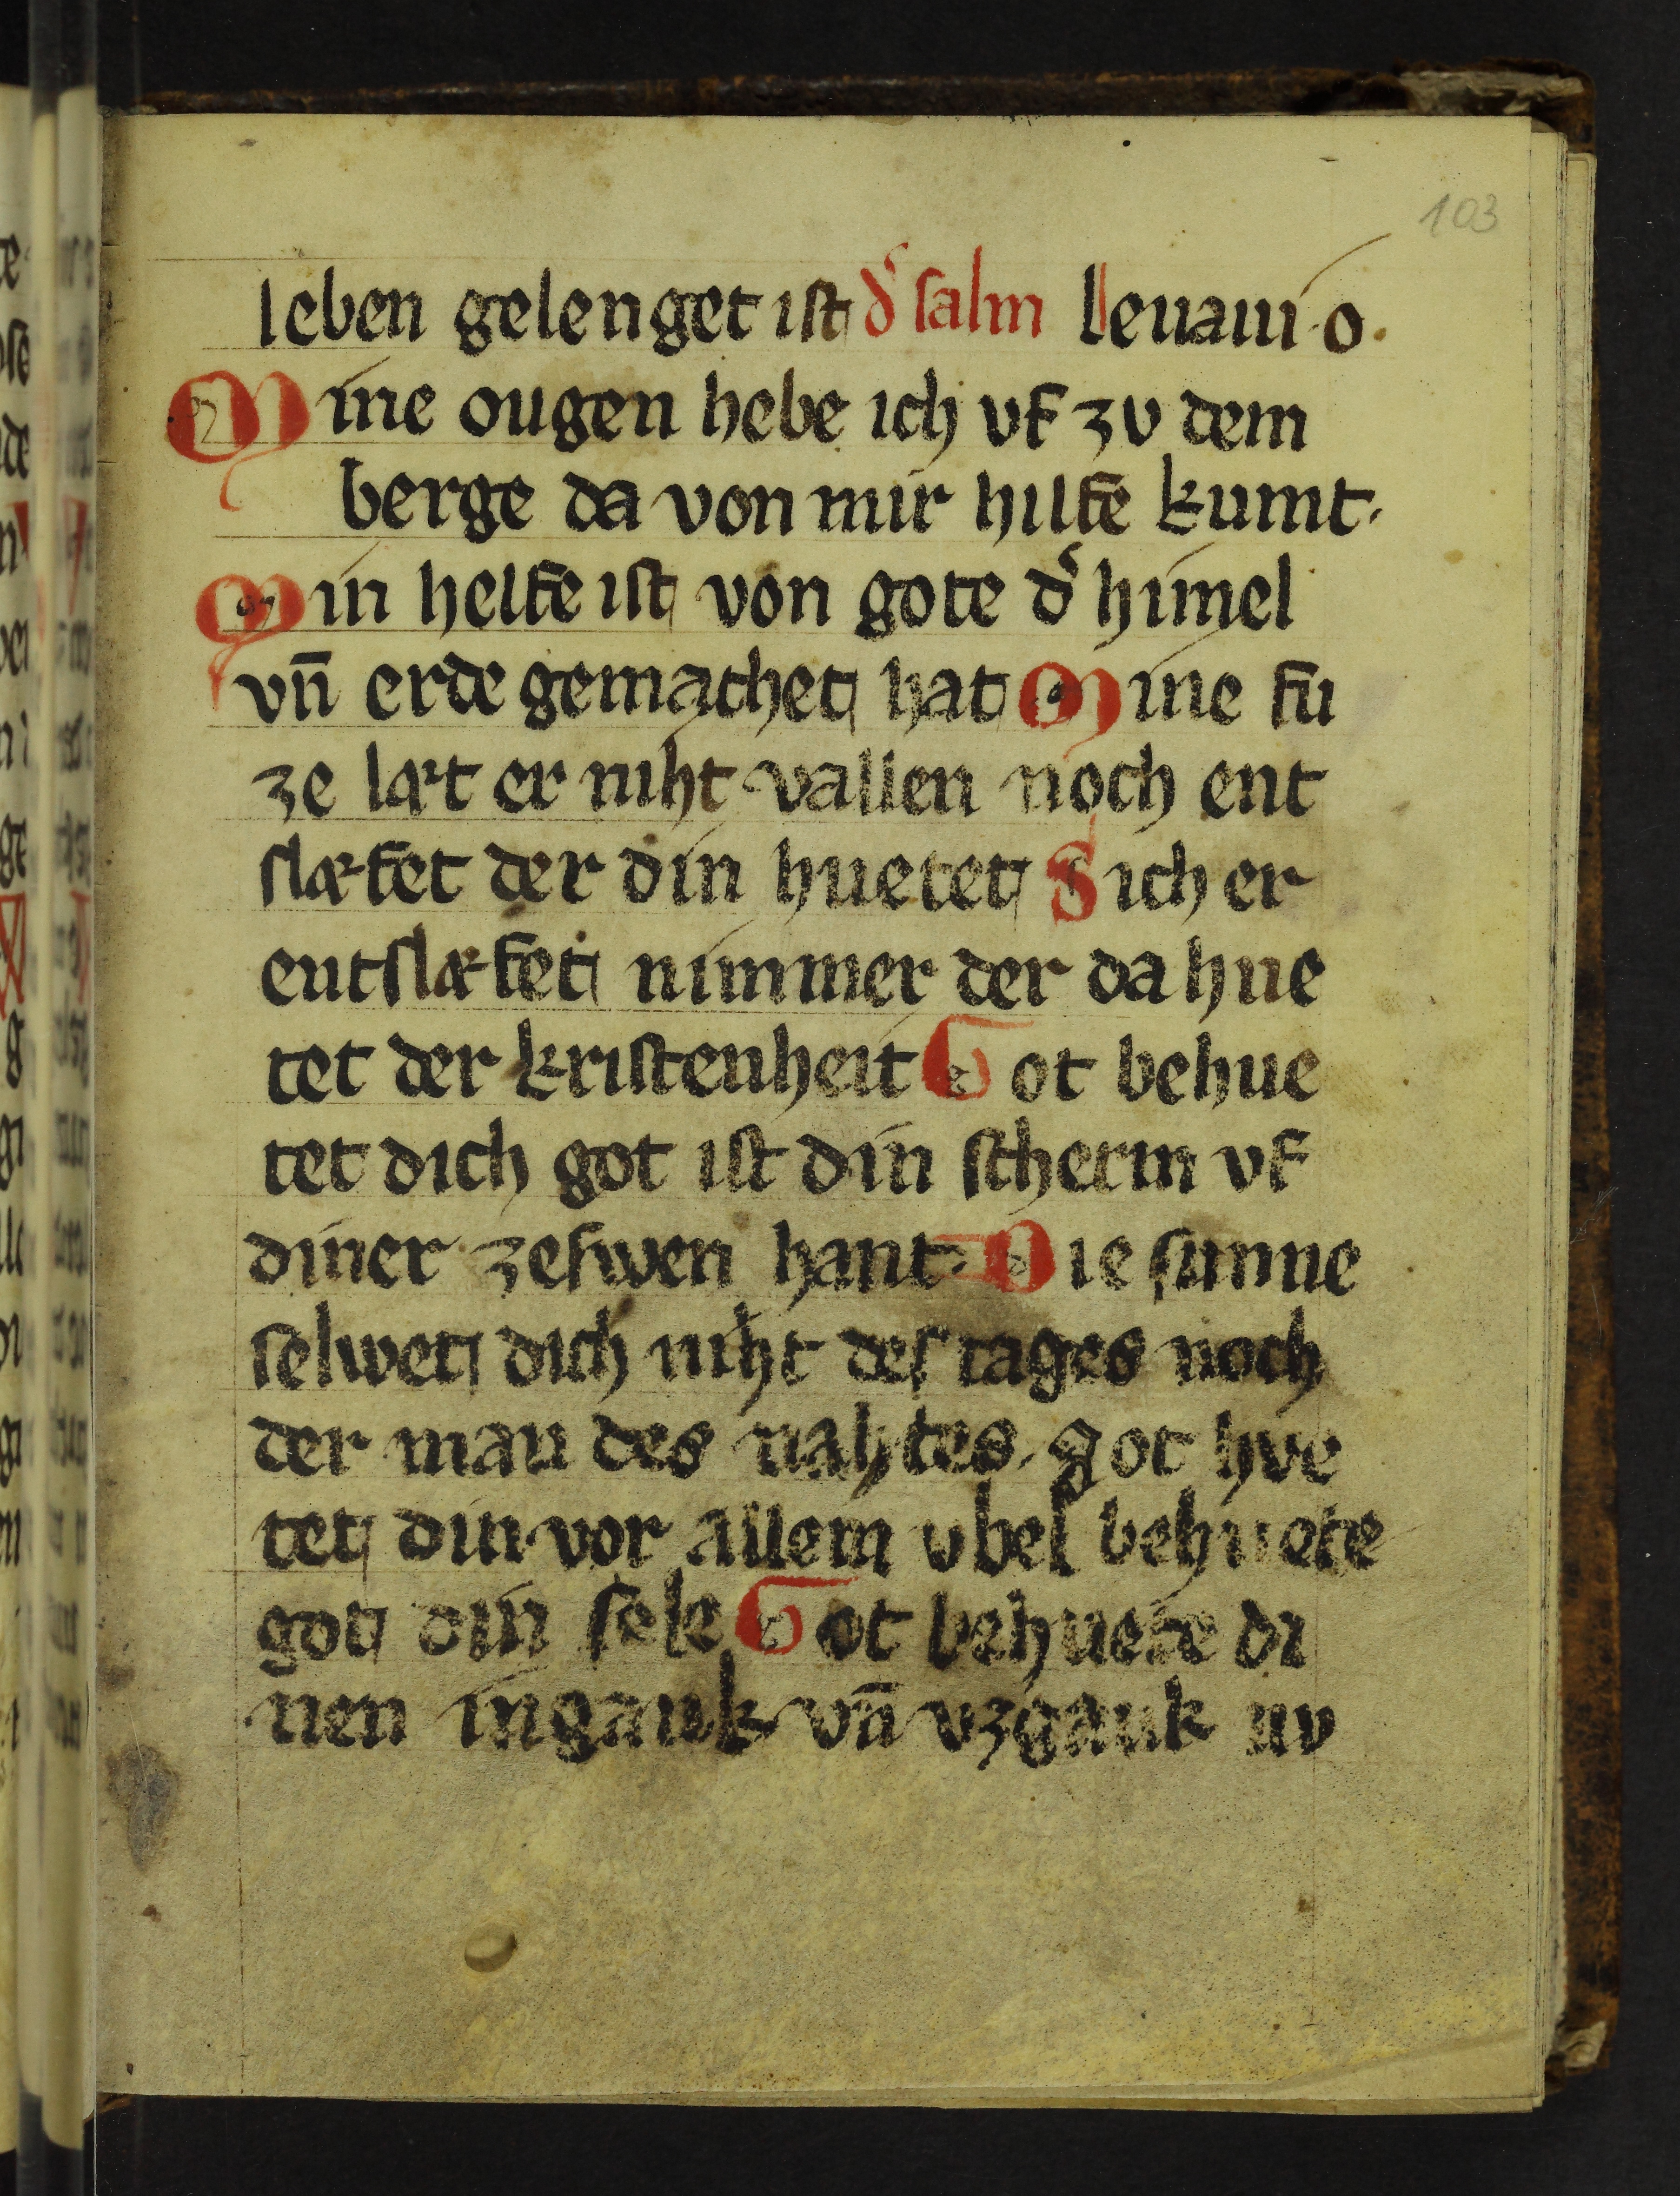 103
leben gelenget iſt dˀ ſalm leuaui·o·
Mine ougen hebe ich vf zv dem
berge da von mir hilfe kumt·
Min helfe iſt von gote dˀ himel
vn̄ erde gemachet hat Mine fu
ze læt er niht vallen noch ent
ſlæfet der din huetet Sich er
entſlæfet nimmer der da hue
tet der kriſtenheit Got behue
tet dich got iſt din ſcherm vf
diner zeſwen hant· Die ſunne
ſelwet dich niht deſ tages noch
der man des nahtes· got hve
tet din vor allem vbel behuete
got din ſele Got behuete di
nen ingank vn̄ vzgank nv